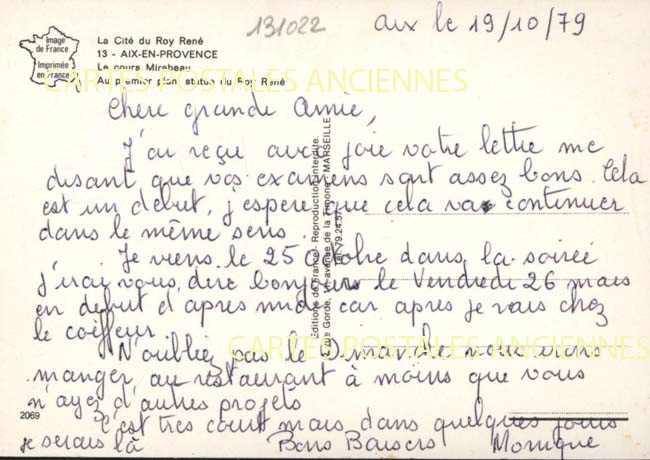 131022
Aix le 19/10/79
Image de France
Imprimée en France
La Cité du Roy René
13 - AIX-EN-PROVENCE
Le cours Mirabeau
Au premier plan statue du Roy René
CARTES POSTALES ANCIENNES
Chere grande Amie,
J'ai reçu avec joie votre lettre me
disant que vos examens sont assez bons. Cela
est un début, j'espere que cela va continuer
dans le même sens.
Je viens le 25 octobre dans la soirée
j'irai vous dire bonjour le Vendredi 26 mais
en début d'apres midi car apres je vais chez
le coiffeur
N'oubliez pas le Dimanche nous irons
manger au restaurant à moins que vous
n'ayez d'autres projets
C'est tres court mais dans quelques jours
je serais là Bons Baisers Monique
2069
CARTES POSTALES ANCIENNES
Editions de France. Reproduction interdite.
MARSEILLE